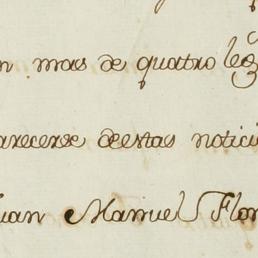 n mas de quattro leg
arecerse deestas notici
uan Manuel Flor